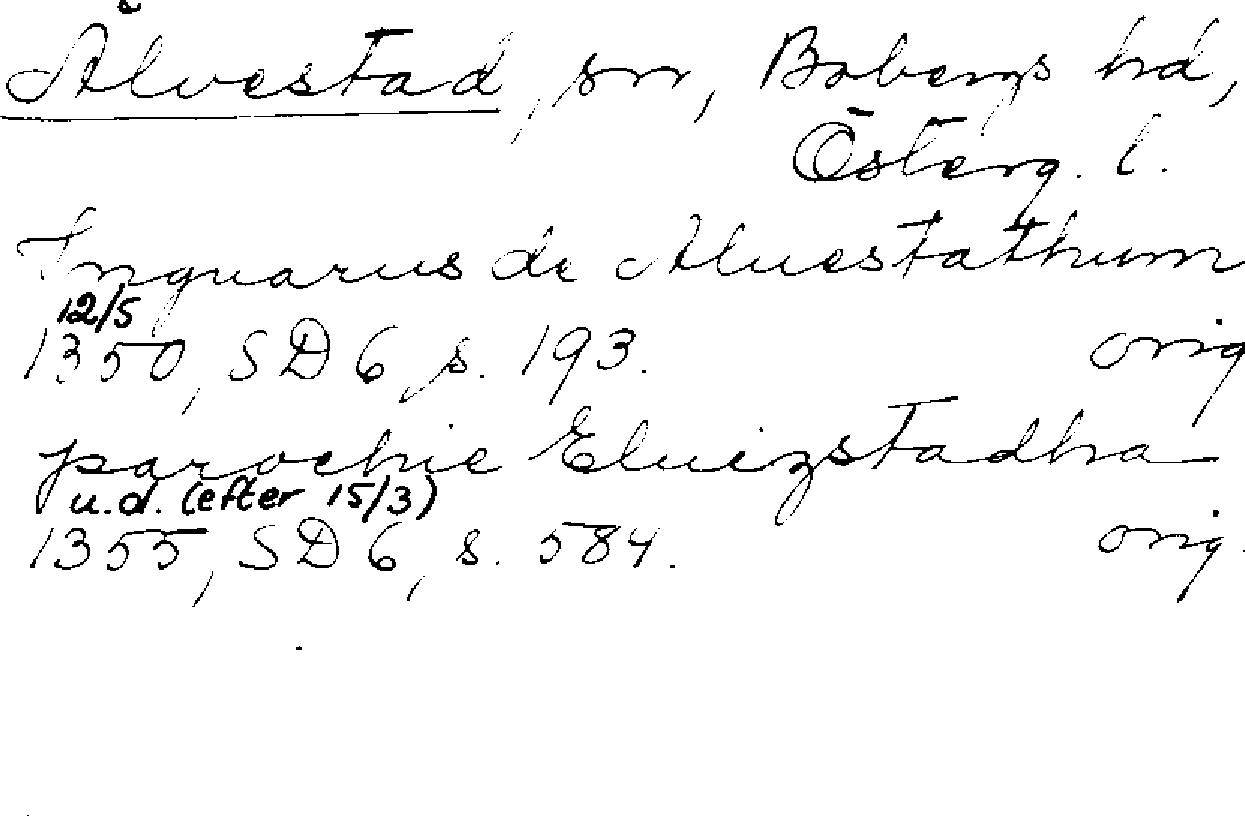 Älvestad, sn, Bobergs hd,
Österg. l.
Inguarus de Aluestathum
12/5
1350, SD 6, s. 193. orig
parochie Eluizstadha
u.d. (efter 15/3)
1355, SD 6, s. 584. orig.